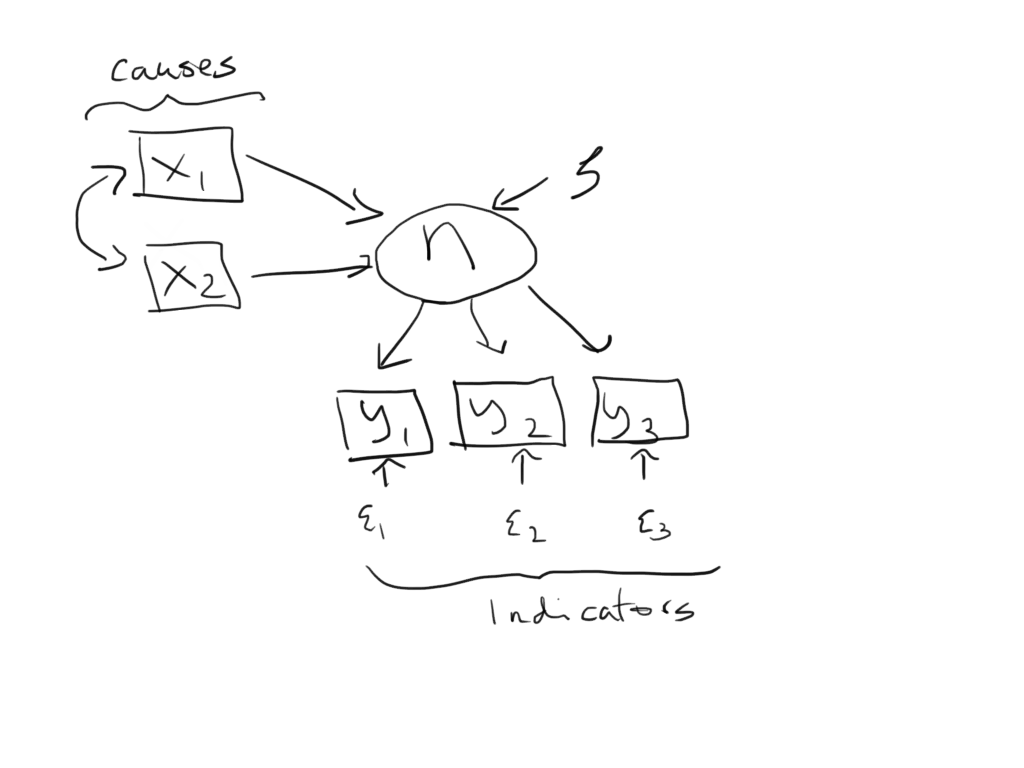 causes
x1
ζ
x2
η
y1 y2 y3
ε1 ε2 ε3
Indicators